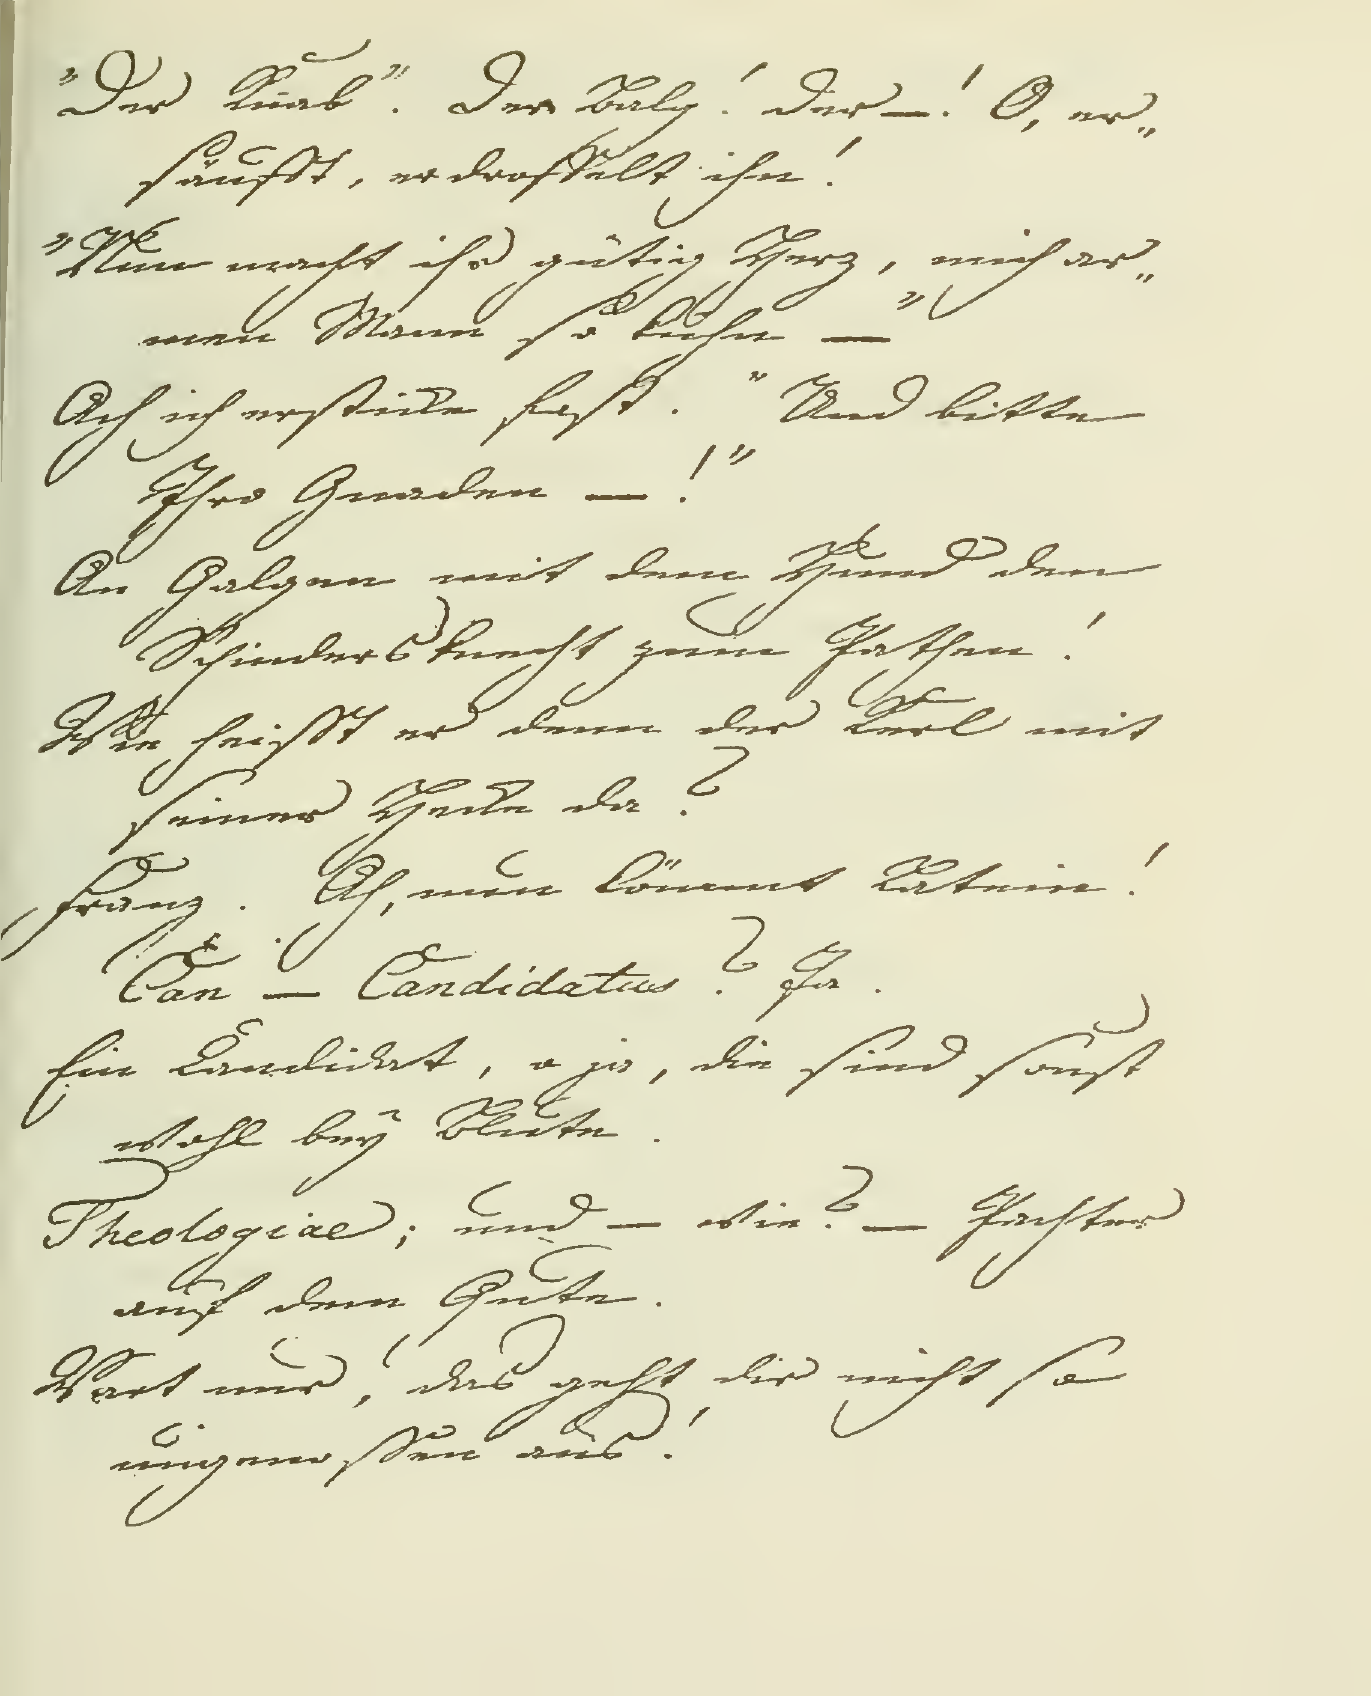 „Der Knab“. Der Balg! der —! O, er„
säufft, erdrosselt ihn!
„Nun macht ihr gütig Herz, mich ar„
men Mann so kühn —“
Ach ich ersticke fast. „Und bitte
Ihro Gnaden —!“
An Galgen mit dem Hund den
Schinders knecht zum Pathen!
Wie heisst er denn der Kerl mit
seiner Hecke da?
Franz. Ah, nun kömmt Latein!
Can — Candidatus? Ja.
Ein Candidat, o ja, die sind sonst
wohl bey Blute.
Theologiae; und — wie? — Pachter
auf dem Gute.
Wart nur, das geht dir nicht so
ungenossen aus!